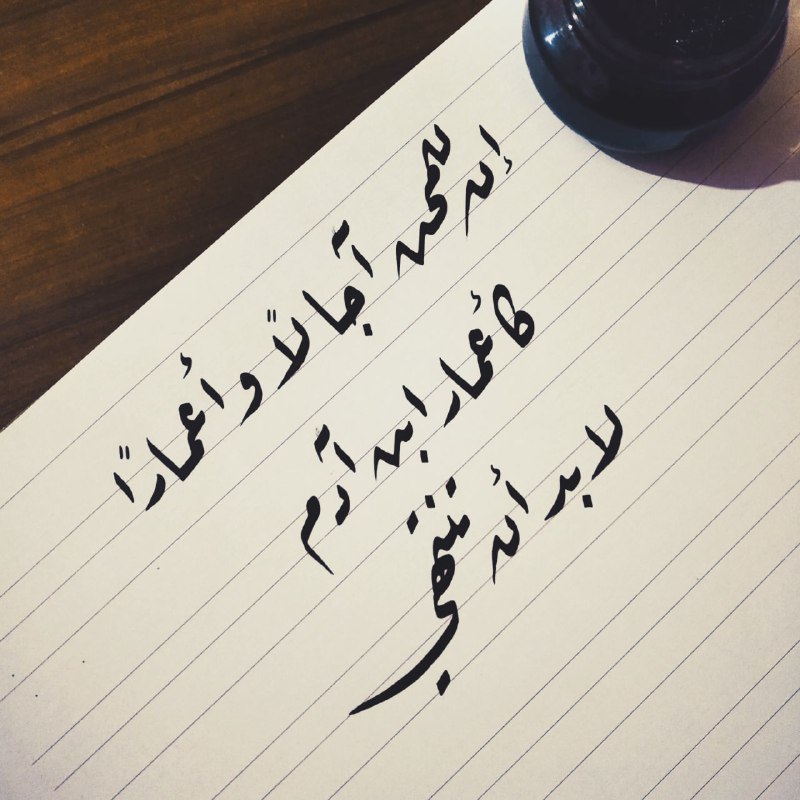 إن للمحن آجالاً وأعماراً
كأعمار ابن آدم
لابد أن تنتهي